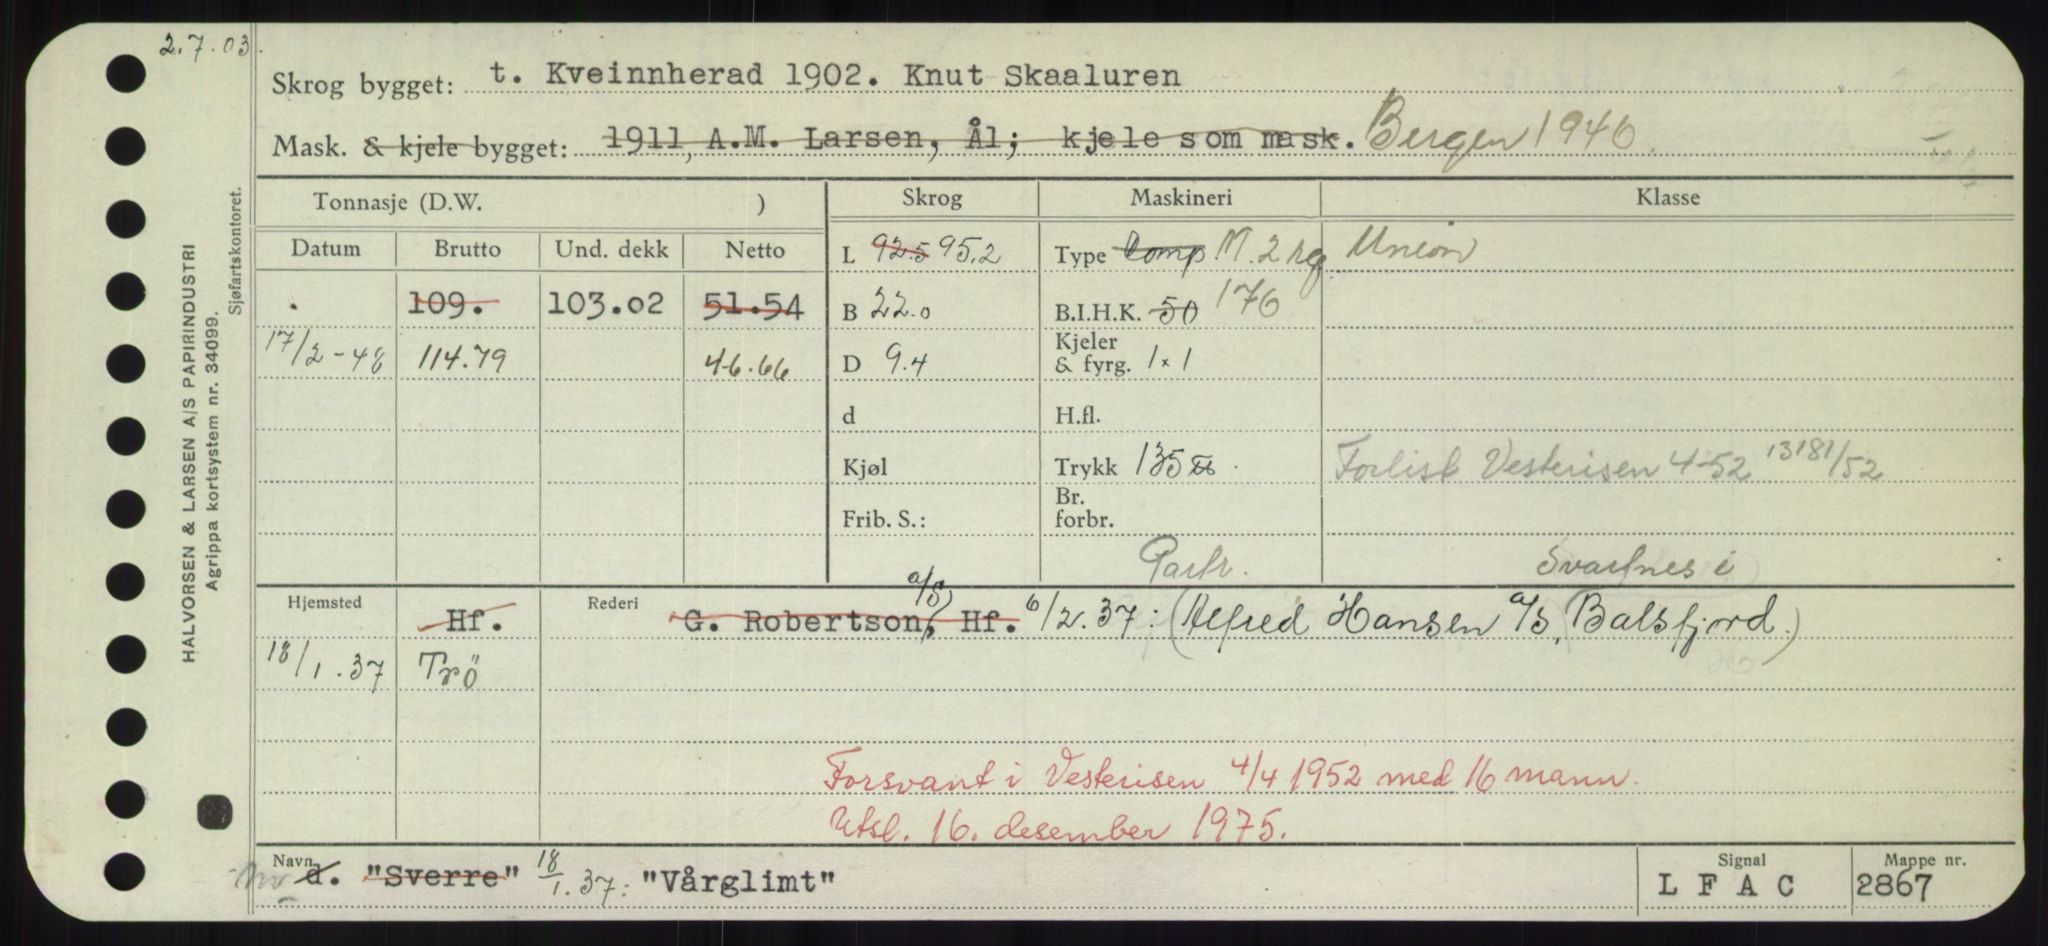 2.7.03.
Skrog bygget: t. Kveinnherad 1902. Knut Skaaluren
Mask. & kjele bygget: 1911, A.M. Larsen, Ål; kjele som mask. Bergen 1946
Tonnasje (D.W. ) Skrog Maskineri Klasse
Datum Brutto Und. dekk Netto L 92.5 95.2 Type Comp M. 2 hg Union
. 109. 103.02 51.54 B 22.0 B.I.H.K. 50 176
17/2-48 114.79 46.66 D 9.4 Kjeler & fyrg. 1 x 1
d H.fl.
Kjøl Trykk 135 Forlist Vesterisen 4-52 13181/52
Frib. S.: Br. forbr.
Partr. Svartnes i
Hjemsted Hf. Rederi G. Robertson, a/S, Hf. 6/2.37: (Alfred Hansen a/s, Balsfjord.)
18/1.37 Trö
Forsvant i Vesterisen 4/4 1952 med 16 mann.
Utsl. 16. desember 1975.
Navn d. "Sverre" 18/1.37: "Vårglimt" Signal L F A C Mappe nr. 2867
HALVORSEN & LARSEN A/S PAPIRINDUSTRI
Agrippa kortsystem nr. 34099.
Sjøfartskontoret.